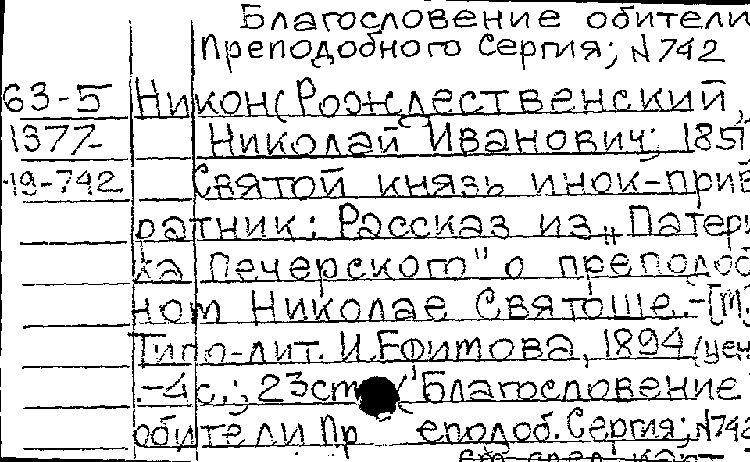 Благословение обители
Преподобного Сергия; N 742
63-5 Никон(Рождественский,
1377 Николай Иванович; 1851
19-742 Святой князь инок-прив
ратник: Рассказ из „Патери
ка Печерского" о преподоб
ном Николае Святоше.-[М.
Типо-лит. И.Ефимова, 1894 (цен
.-4с.; 23см (Благословение
обители Преподоб. Сергия; N742